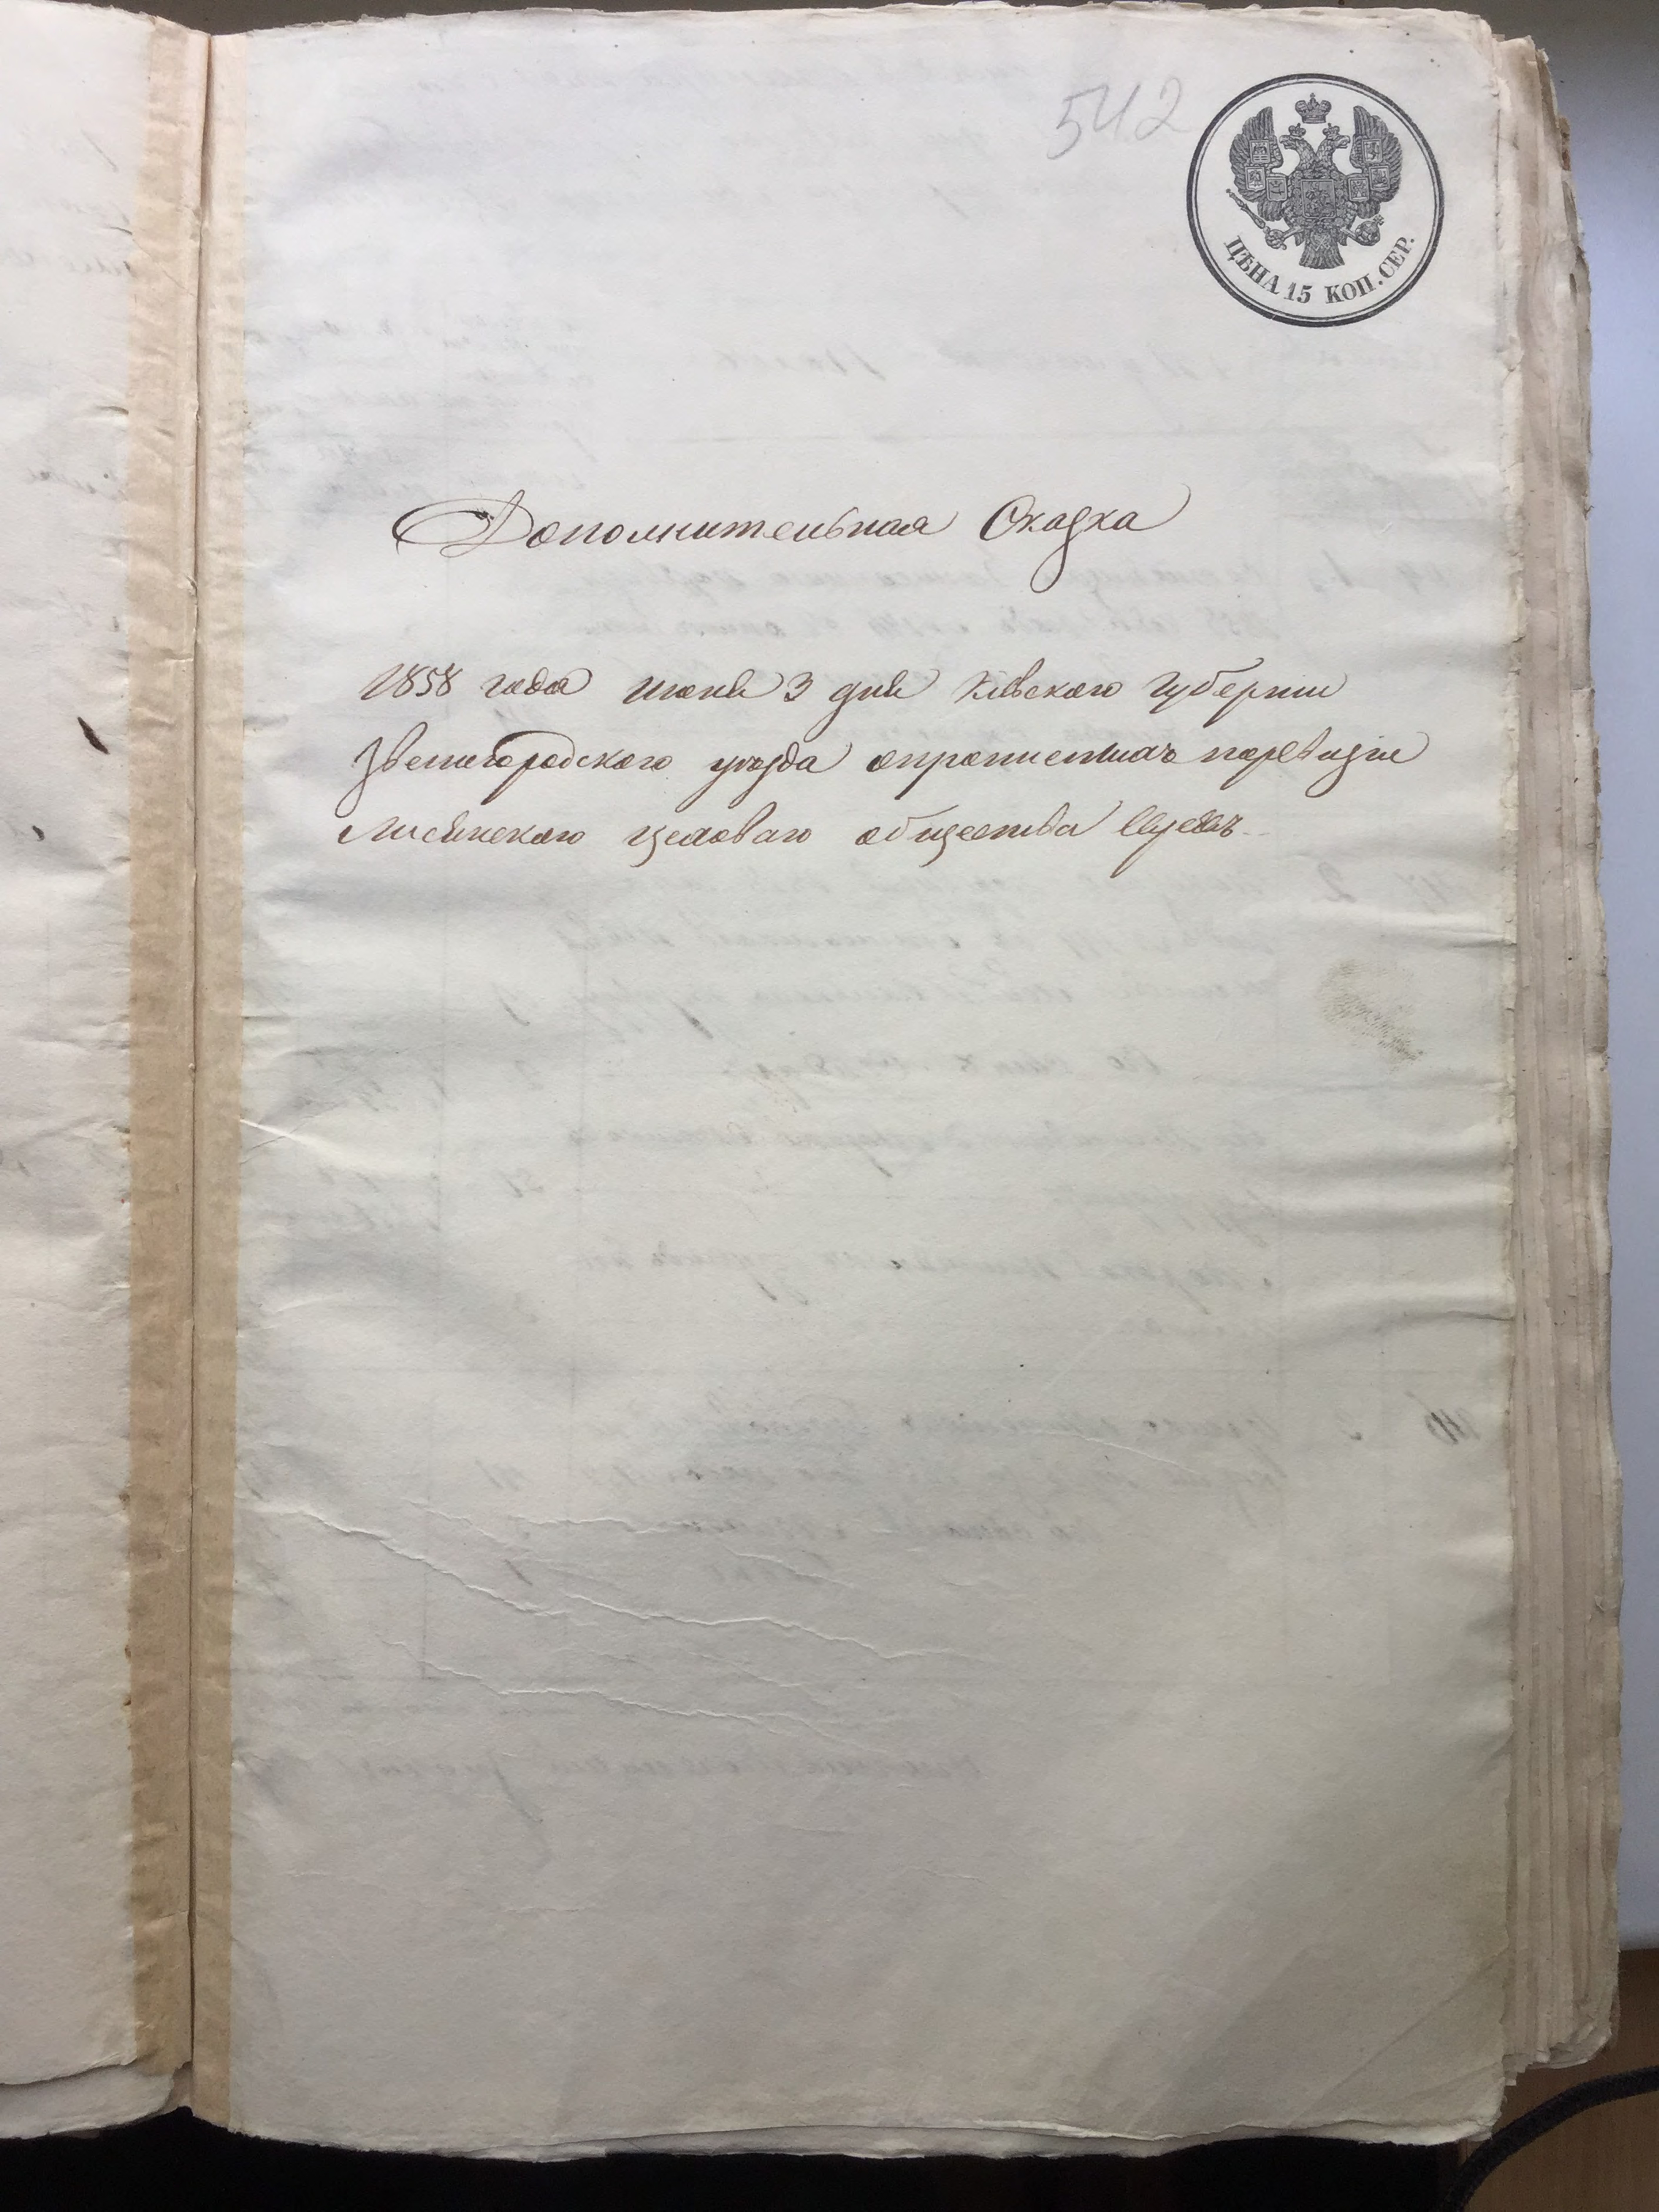 542
ЦѢНА 15 КОП. СЕР.
Дополнительная Сказка
1858 года июня 3 дня Кіевской Губерніи
Звенигородского уезда опрописныхъ поревизіи
Лисянского общества Евреевъ